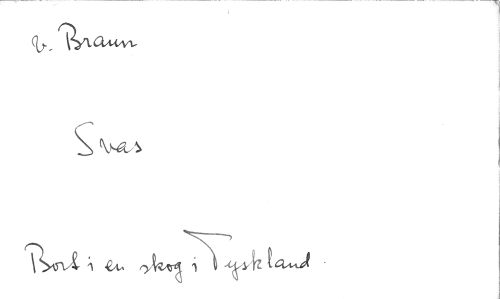 v. Braun
Svas
Bort i en skog i Tyskland.